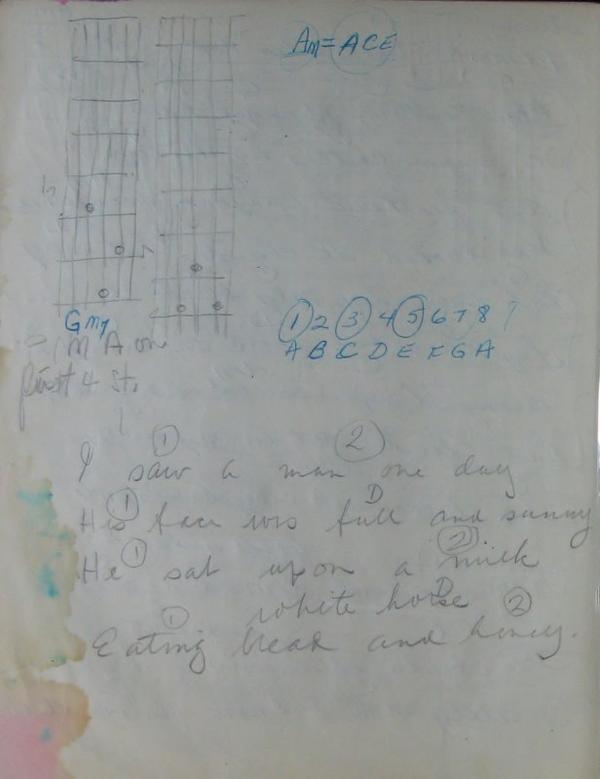 Am = ACE
Gm7
M A on
first 4 St.
1 2 3 4 5 6 7 8
A B C D E F G A
1 2
I saw a man one day
1 D
His face was full and sunny
1 2
He sat upon a milk
D
white horse 2
1
Eating bread and honey.